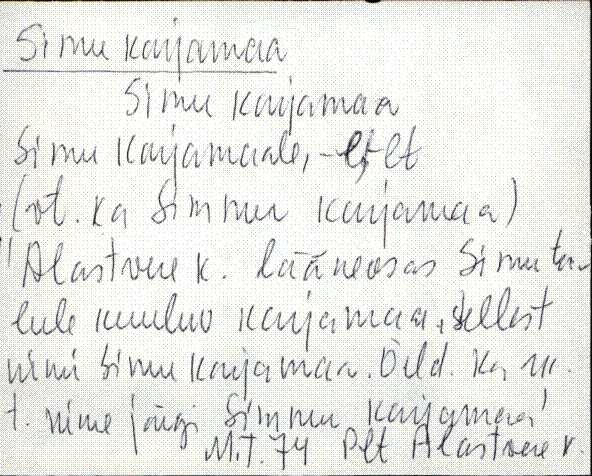 Simu karjamaa
Simu karjamaa
Simu karjamaale, -l, -lt
(vt. ka Simmu karjamaa)
"Alastvere k. lääneosas Simu ta-
lule kuuluv karjamaa, sellest
nimi Simu karjamaa. Öeld. ka m.
t. nime järgi Simmu karjamaa"
M.T. 74 Plt Alastvere k.